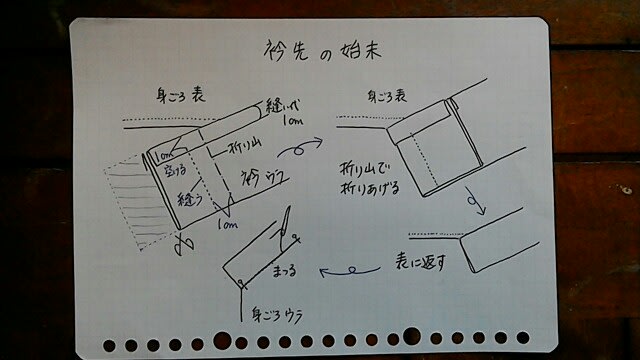 衿先の始末
身ごろ表
縫い代
1cm
折り山
1cm
空ける
縫う
衿ウラ
1cm
身ごろ表
折り山で
折りあげる
表に返す
まつる
身ごろウラ